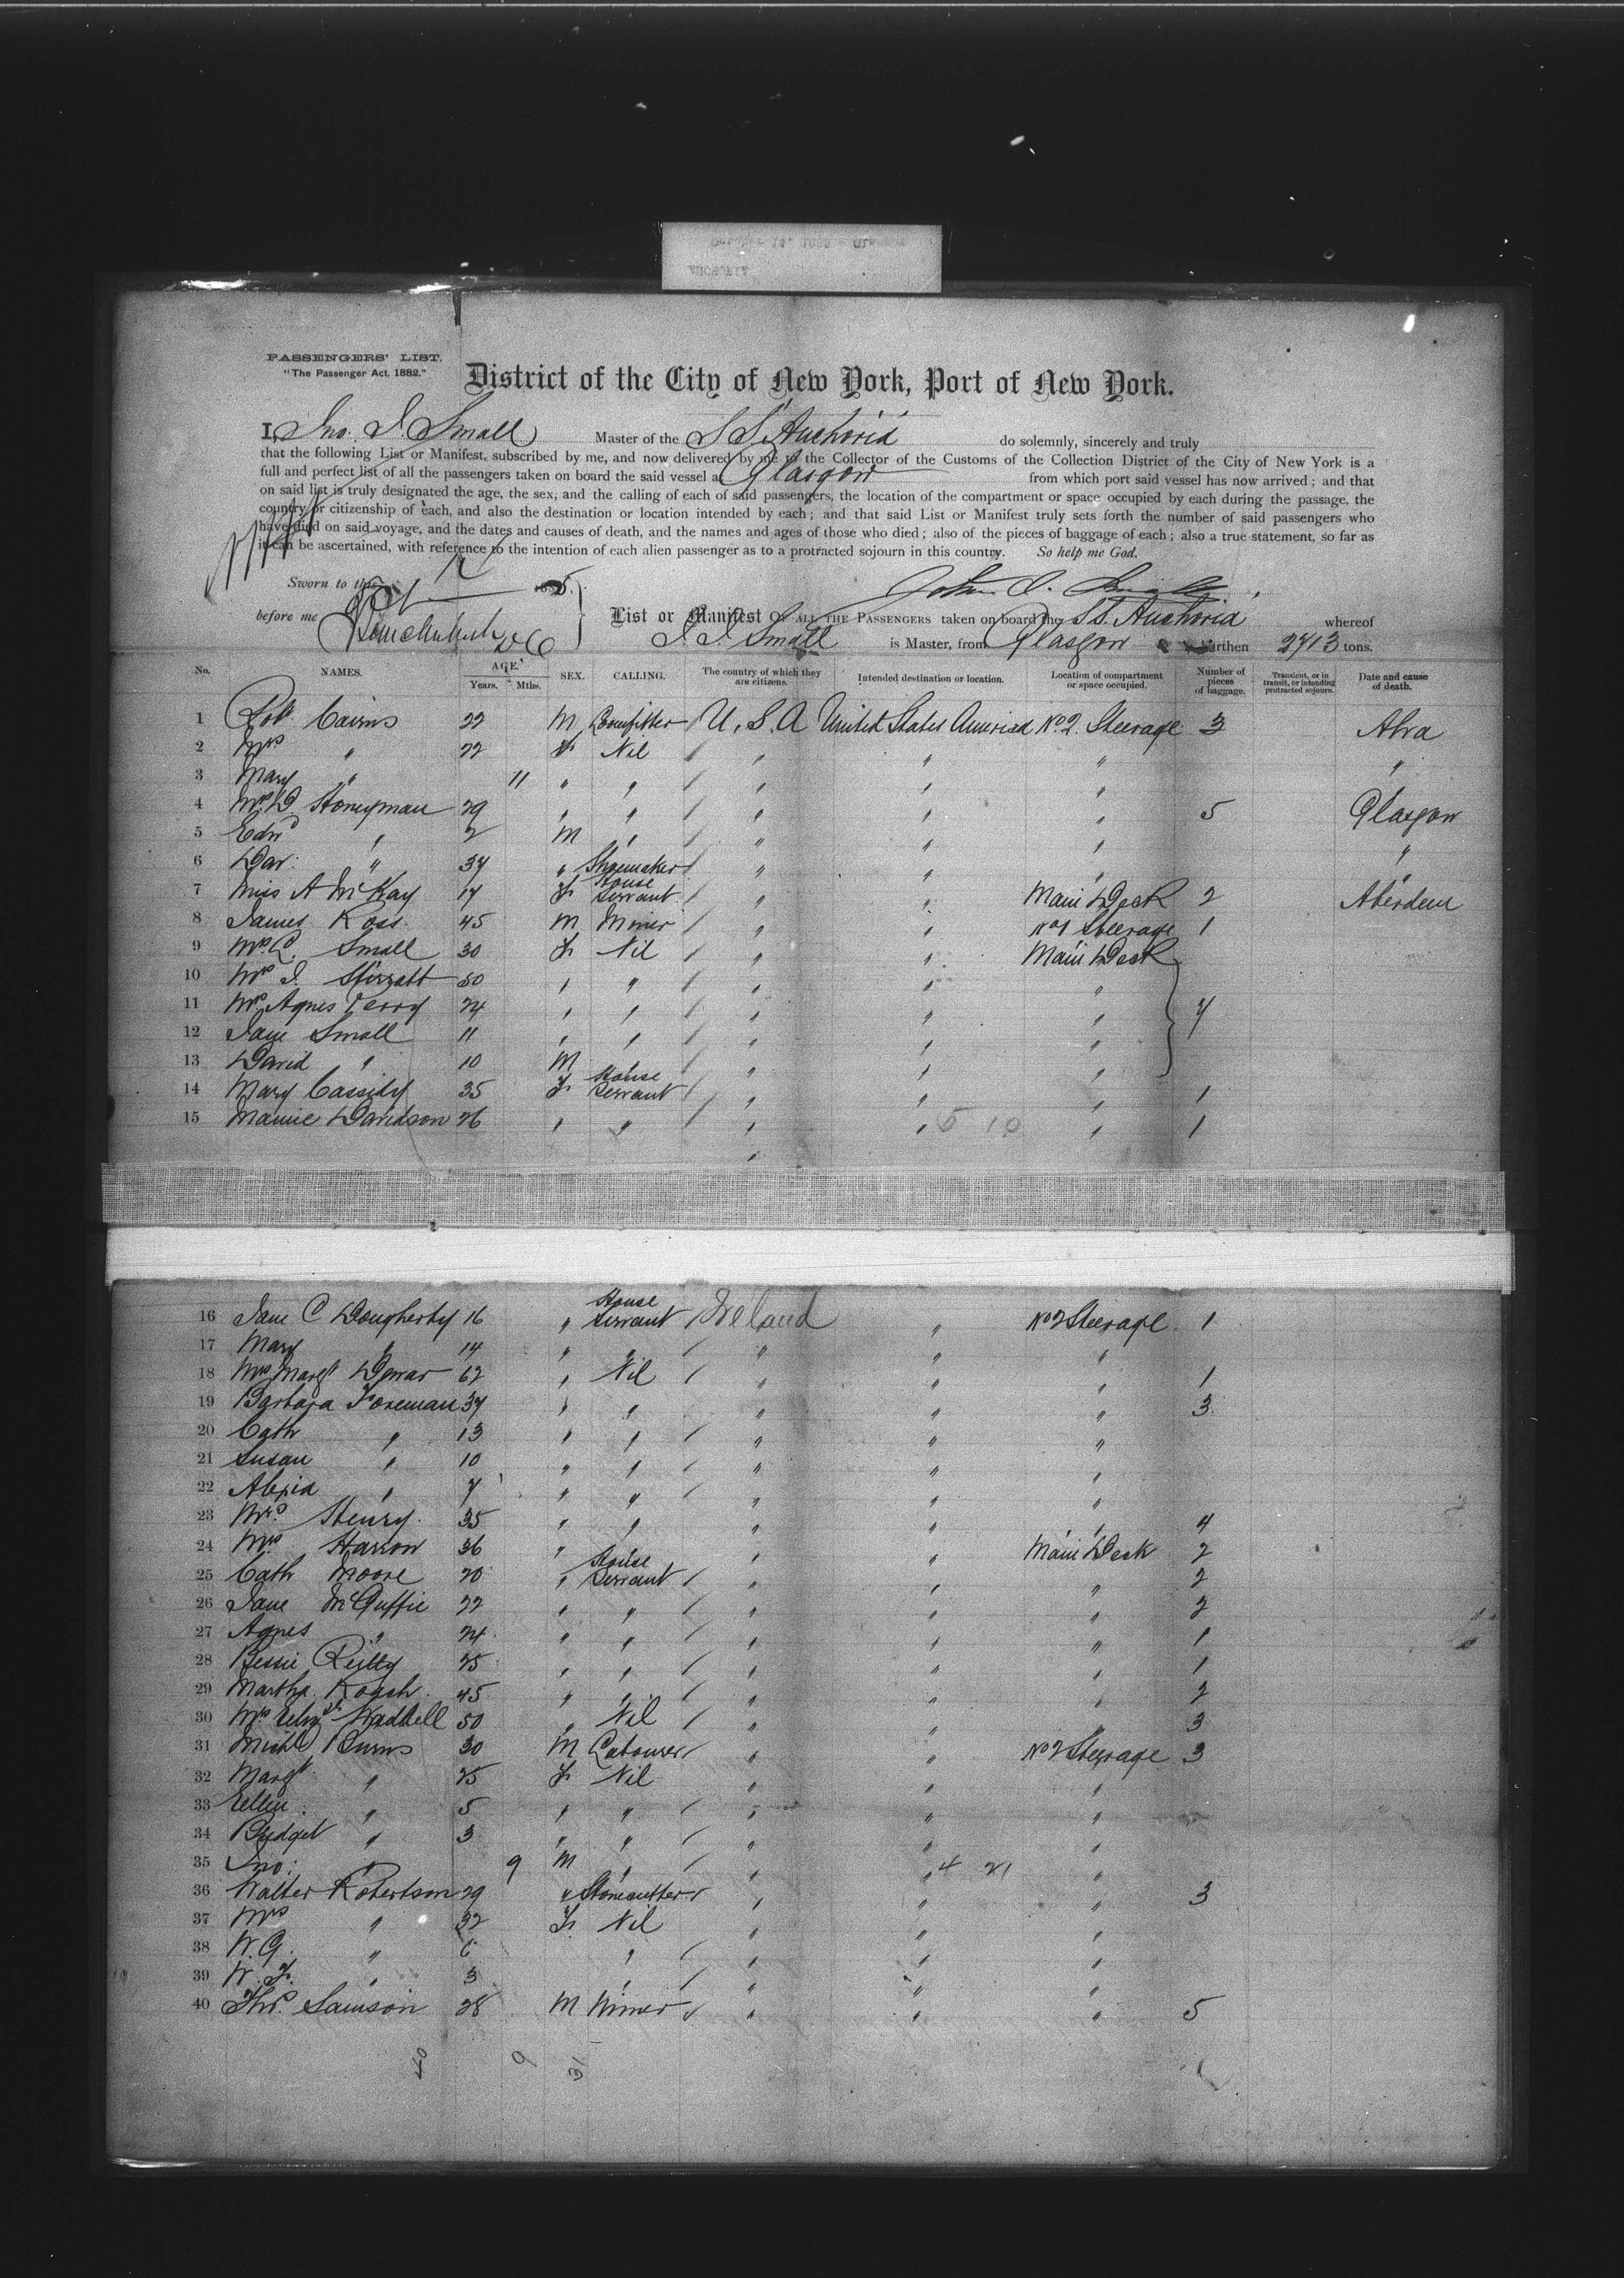 PASSENGERS' LIST.
"The Passenger Act, 1882."
District of the City of New York, Port of New York.
I, Jno. J. Small Master of the S S Anchoria do solemnly, sincerely and truly
that the following List or Manifest, subscribed by me, and now delivered by me to the Collector of the Customs of the Collection District of the City of New York is a
full and perfect list of all the passengers taken on board the said vessel at Glasgow from which port said vessel has now arrived; and that
on said list is truly designated the age, the sex, and the calling of each of said passengers, the location of the compartment or space occupied by each during the passage, the
country or citizenship of each, and also the destination or location intended by each; and that said List or Manifest truly sets forth the number of said passengers who
have died on said voyage, and the dates and causes of death, and the names and ages of those who died; also of the pieces of baggage of each; also a true statement, so far as
it can be ascertained, with reference to the intention of each alien passenger as to a protracted sojourn in this country. So help me God.
Sworn to this 14
Oct 1885.
before me
John J. Small
List or Manifest OF ALL THE PASSENGERS taken on board the SS. Anchoria whereof
J. J. Small is Master, from Glasgow burthen 2713 tons.
No. NAMES. AGE. Years. Mths. SEX. CALLING. The country of which they are citizens. Intended destination or location. Location of compartment or space occupied. Number of pieces of baggage. Transient, or in transit, or intending protracted sojourn. Date and cause of death.
1 Robt Cairns 22 M Loomfitter U, S. A United States America No 2. Steerage 3 Alva
2 Mrs " 22 F Nil " " " "
3 Mary " 11 " " " " "
4 Mrs D Honeyman 29 " " " " " 5 Glasgow
5 Edwd " 2 M " " " " "
6 Dav: " 37 " Shoemaker " " " "
7 Miss A McKay 17 F House Servant " " Main Deck 2 Aberdeen
8 James Ross 45 M Miner " " No 1 Steerage 1
9 Mrs C. Small 30 F Nil " " Main Deck
10 Mrs J. Stirratt 50 " " " " "
11 Mrs Agnes Perry 24 " " " " " 7
12 Jane Small 11 " " " " "
13 David " 10 M " " " "
14 Mary Cassidy 35 F House Servant " " " 1
15 Mamie Davidson 26 " " " " 5 10 " 1
16 Jane C Dougherty 16 " House Servant Ireland " No 2 Steerage 1
17 Mary " 14 " " " " "
18 Mrs Margt Dewar 62 " Nil " " " 1
19 Barbara Foreman 37 " " " " " 3
20 Cath " 13 " " " " "
21 Susan " 10 " " " " "
22 Alexia " 7 " " " " "
23 Mrs. Henry. 35 " " " " " 4
24 Mrs Harron 36 " " " Main Deck 2
25 Cath Moore 20 " House Servant " " " 2
26 Jane McGuffie 22 " " " " " 2
27 Agnes " 24 " " " " " 1
28 Bessie Reilly 25 " " " " " 1
29 Martha Roach 45 " " " " " 2
30 Mrs Elizth Waddell 50 " Nil " " " 3
31 Michl Burns 30 M Labourer " " No 2 Steerage 3
32 Margt " 25 F Nil " " "
33 Ellen " 5 " " " " "
34 Bridget " 3 " " " " "
35 Jno: " 9 M " " " 4 21 "
36 Walter Robertson 29 " Stonecutter " " " 3
37 Mrs " 32 F. Nil " " "
38 W. G. " 6 " " " "
39 W. F. " 3 " " " "
40 Thos. Samson 28 M Miner " " " 5
40 9 31